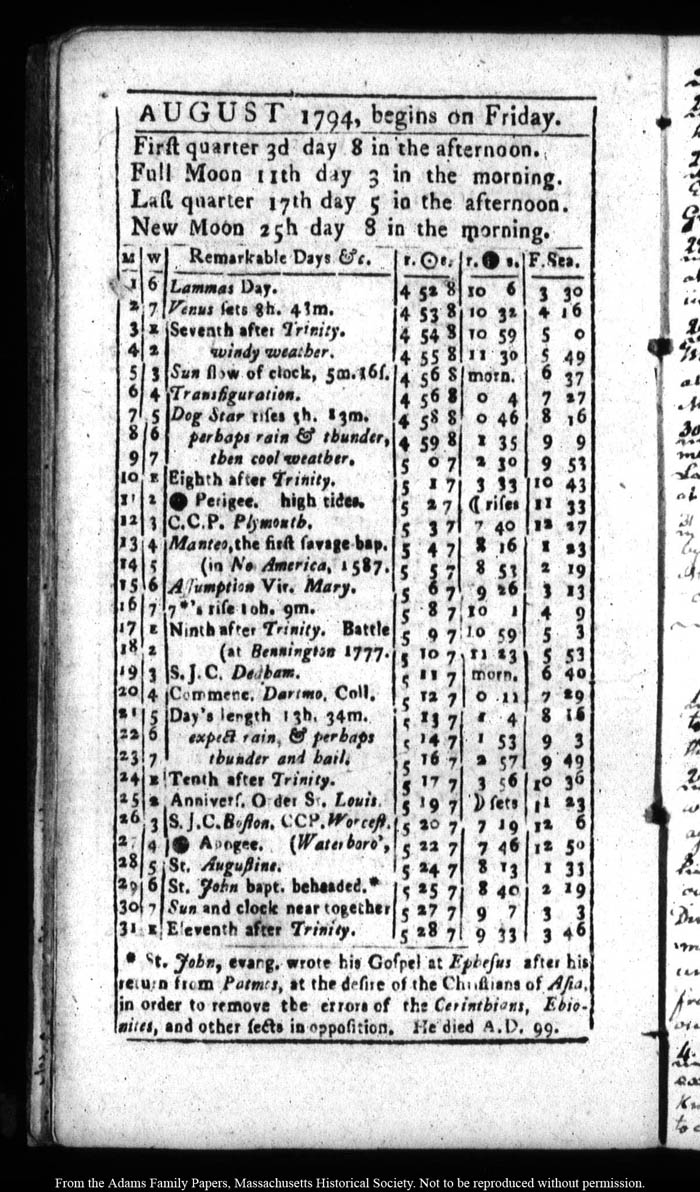 AUGUST 1794, begins on Friday.
Firſt quarter 3d day 8 in the afternoon.
Full Moon 11th day 3 in the morning.
Laſt quarter 17th day 5 in the afternoon.
New Moon 25h day 8 in the morning.
M W Remarkable Days &c. r. ☉ s. r. ● s. F. Sea.
1 6 Lammas Day. 4 52 8 10 6 3 30
2 7 Venus ſets 8h. 43m. 4 53 8 10 32 4 16
3 E Seventh after Trinity. 4 54 8 10 59 5 0
4 2 windy weather. 4 55 8 11 30 5 49
5 3 Sun ſlow of clock, 5m. 16ſ. 4 56 8 morn. 6 37
6 4 Transfiguration. 4 56 8 0 4 7 27
7 5 Dog Star riſes 3h. 13m. 4 58 8 0 46 8 16
8 6 perhaps rain & thunder, 4 59 8 1 35 9 9
9 7 then cool weather. 5 0 7 2 30 9 53
10 E Eighth after Trinity. 5 1 7 3 33 10 43
11 2 ● Perigee. high tides. 5 2 7 ☾ riſes 11 33
12 3 C.C.P. Plymouth. 5 3 7 7 40 12 27
13 4 Manteo, the firſt ſavage bap. 5 4 7 8 16 1 23
14 5 (in No America, 1587. 5 5 7 8 53 2 19
15 6 Aſſumption Vir. Mary. 5 6 7 9 26 3 13
16 7 7*'s riſe 10h. 9m. 5 8 7 10 1 4 9
17 E Ninth after Trinity. Battle 5 9 7 10 59 5 3
18 2 (at Bennington 1777. 5 10 7 11 23 5 53
19 3 S.J.C. Dedham. 5 11 7 morn. 6 40
20 4 Commenc. Dartmo. Coll. 5 12 7 0 11 7 29
21 5 Day's length 13h. 34m. 5 13 7 1 4 8 16
22 6 expect rain, & perhaps 5 14 7 1 53 9 3
23 7 thunder and hail. 5 16 7 2 57 9 49
24 E Tenth after Trinity. 5 17 7 3 56 10 36
25 2 Anniverſ. O der St. Louis. 5 19 7 ☽ ſets 11 23
26 3 S.J.C. Boſton, CCP. Worceſt. 5 20 7 7 19 12 6
27 4 ● Apogee. (Waterboro', 5 22 7 7 46 12 50
28 5 St. Auguſtine. 5 24 7 8 13 1 33
29 6 St. John bapt. beheaded.* 5 25 7 8 40 2 19
30 7 Sun and clock near together 5 27 7 9 7 3 3
31 E Eleventh after Trinity. 5 28 7 9 33 3 46
* St. John, evang. wrote his Goſpel at Epheſus after his
return from Patmos, at the deſire of the Chriſtians of Aſia,
in order to remove the errors of the Cerinthians, Ebio-
nites, and other ſects in oppoſition. He died A.D. 99.
From the Adams Family Papers, Massachusetts Historical Society. Not to be reproduced without permission.